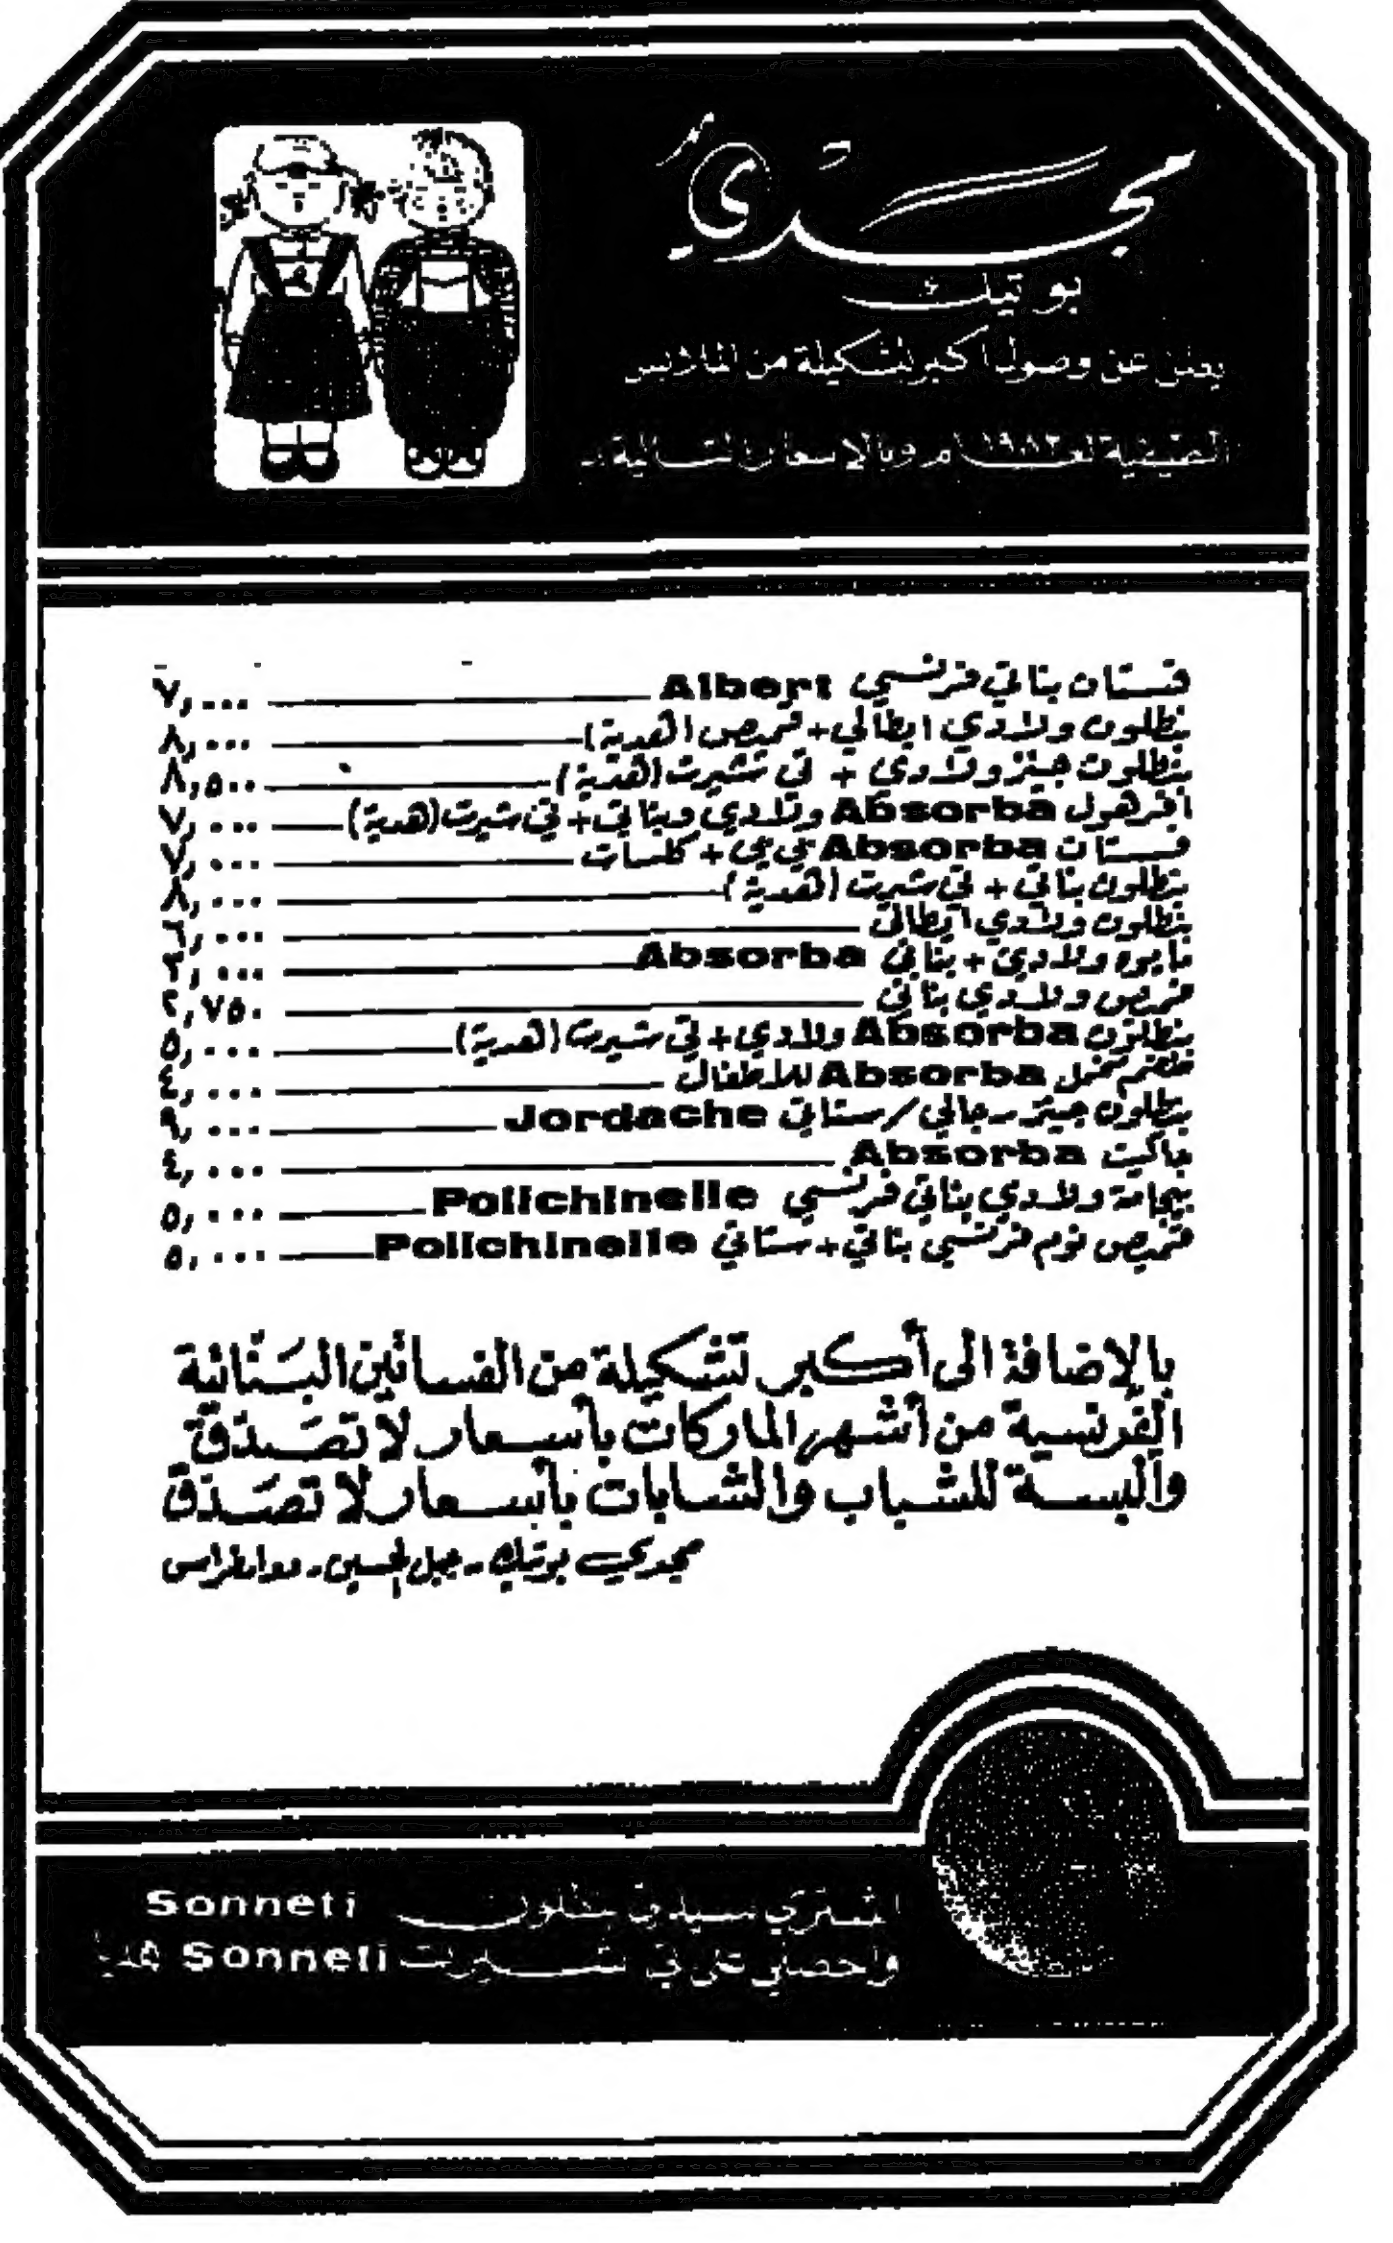 مجدي
بوتيك
يعلن عن وصول اكبر تشكيلة من الملابس
الصيفية لعام ١٩٨٢م وبالاسعار التالية :-
فستان بناتي فرنسي Albert ٧,٠٠٠
بنطلون ولادي ايطالي + قميص (هدية) ٨,٠٠٠
بنطلون جينز ولادي + تي تشيرت (هدية) ٨,٥٠٠
افرهول Absorba ولادي وبناتي + تي شيرت (هدية) ٧,٠٠٠
فستان Absorba بي بي + كلسات ٧,٠٠٠
بنطلون بناتي + تي شيرت (هدية) ٨,٠٠٠
بنطلون ولادي ايطالي ٦,٠٠٠
مايوه ولادي + بناتي Absorba ٢,٠٠٠
قميص ولادي بناتي ٢,٧٥٠
بنطلون Absorba ولادي + تي شيرت (هدية) ٥,٠٠٠
طقم مخمل Absorba للاطفال ٤,٠٠٠
بنطلون جينز رجالي / ستاتي Jordache ٩,٠٠٠
جاكيت Absorba ٤,٠٠٠
بيجامة ولادي بناتي فرنسي Polichinelle ٥,٠٠٠
قميص نوم فرنسي بناتي + ستاتي Polichinelle ٥,٠٠٠
بالإضافة الى أكبر تشكيلة من الفساتين البناتية
الفرنسية من أشهر الماركات بأسعار لا تصدق
وألبسة للشباب والشابات بأسعار لا تصدق
مجدي بوتيك - جبل الحسين - دوار فراس
اشتري سيدتي بنطلون Sonneti
واحصلي على تي شيرت Sonneti هدية